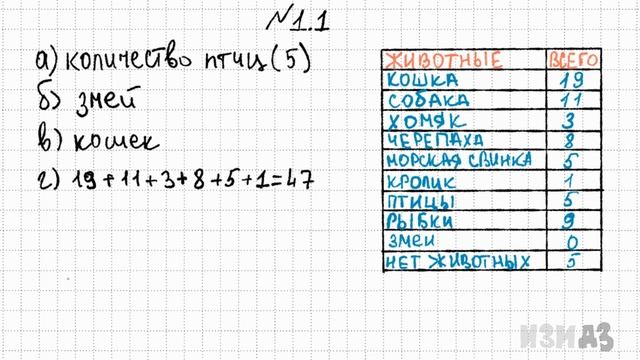 №1.1
а) количество птиц (5)
б) змей
в) кошек
г) 19+11+3+8+5+1=47
ЖИВОТНЫЕ ВСЕГО
КОШКА 19
СОБАКА 11
ХОМЯК 3
ЧЕРЕПАХА 8
МОРСКАЯ СВИНКА 5
КРОЛИК 1
ПТИЦЫ 5
РЫБКИ 9
ЗМЕИ 0
НЕТ ЖИВОТНЫХ 5
ИЗИ ДЗ